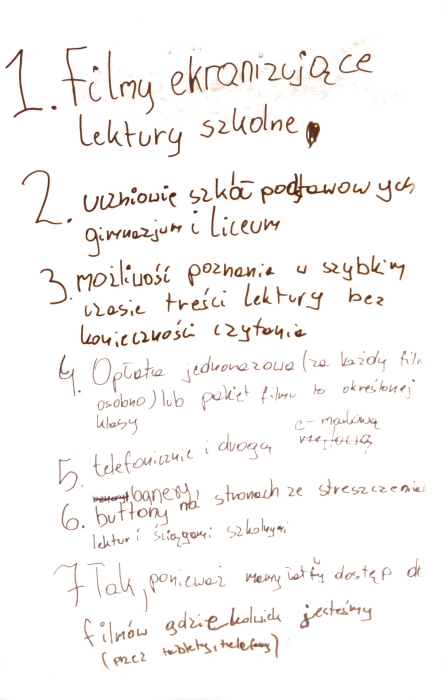 1. Filmy ekranizujące
lektury szkolne
2. uczniowie szkół podstawowych
gimnazjum i liceum
3. możliwość poznania w szybkim
czasie treści lektury bez
konieczności czytania
4. Opłata jednorazowa (za każdy film
osobno) lub pakiet filmu to określonej
klasy
5. telefonicznie i drogą e-mailową
banery,
6. buttony na stronach ze streszczeniem
lektur i ściągami szkolnymi
7 Tak, ponieważ mamy łatwy dostęp do
filmów gdziekolwiek jesteśmy
(przez tablety, telefony)